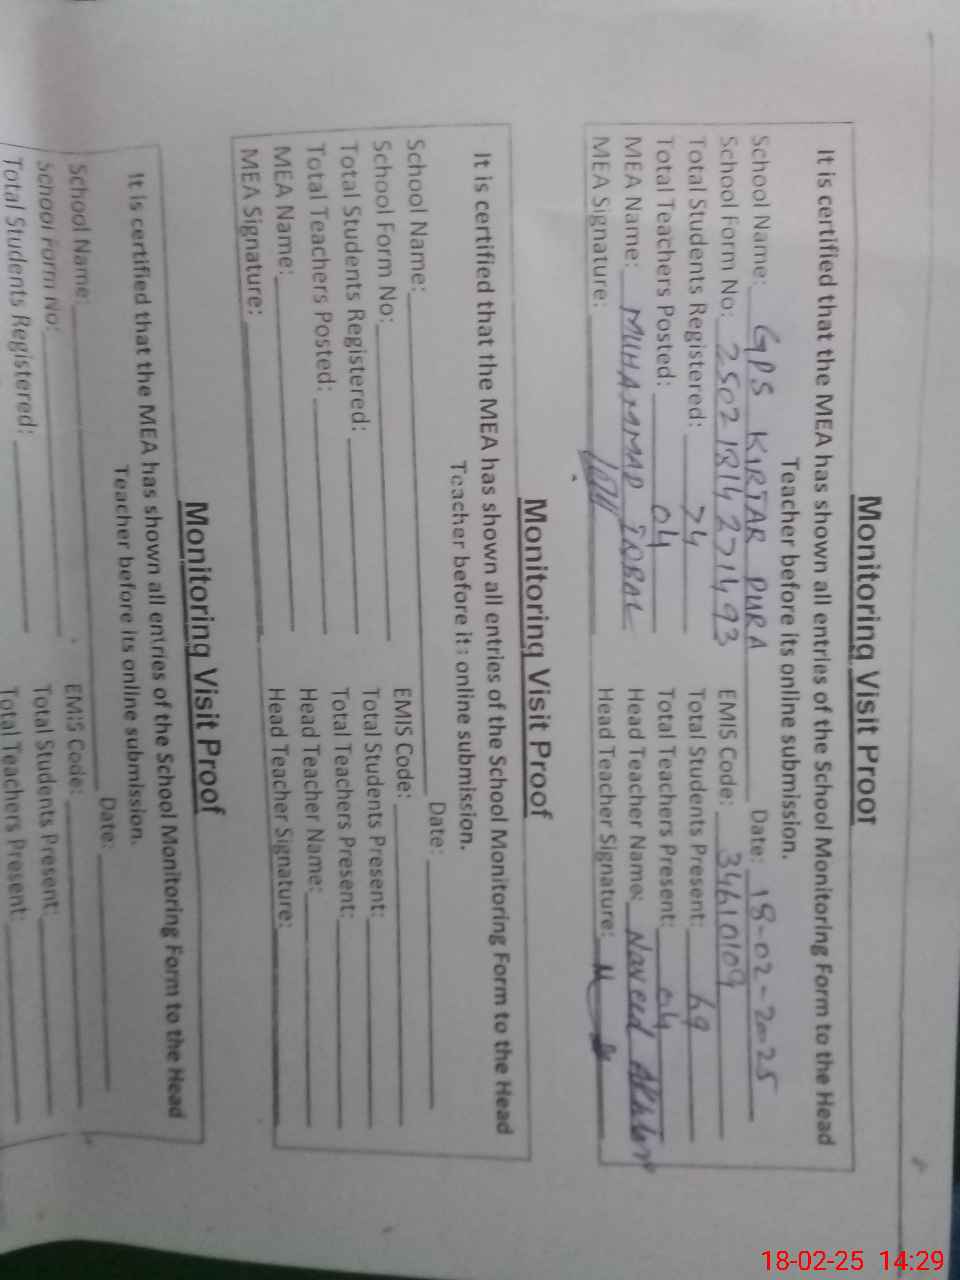 Monitoring Visit Proof
It is certified that the MEA has shown all entries of the School Monitoring Form to the Head
Teacher before its online submission.
School Name: GPS KIRTAR PURA Date: 18-02-2025
School Form No: EMIS Code: 34610109
Total Students Registered: 74 Total Students Present: 69
Total Teachers Posted: 04 Total Teachers Present: 04
MEA Name: MUHAMMAD IQBAL Head Teacher Name: Naveed Akhtar
MEA Signature: Head Teacher Signature:
Monitoring Visit Proof
It is certified that the MEA has shown all entries of the School Monitoring Form to the Head
Teacher before its online submission.
School Name: Date:
School Form No: EMIS Code:
Total Students Registered: Total Students Present:
Total Teachers Posted: Total Teachers Present:
MEA Name: Head Teacher Name:
MEA Signature: Head Teacher Signature:
Monitoring Visit Proof
It is certified that the MEA has shown all entries of the School Monitoring Form to the Head
Teacher before its online submission.
School Name: Date:
School Form No: EMIS Code:
Total Students Registered: Total Students Present:
Total Teachers Present:
18-02-25 14:29